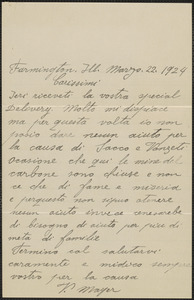 Farmington. Ill. Marzo. 22. 1924
Carissimi:
Ieri recevetti la vostra special
Delevery. Molto mi dispiace
ma per questa volta io non
posso dare nessun aiuto per
la causa di Sacco e Vanzet
Ocasione che qui le mine del
carbone sono chiuse e non
ce che di fame e miseria
e perquesto non sipuo ativere
nesun aiuto envece
di bisogno di aiuto per piu di
metà di famelie
Termino col salutarvi
caramente e mi dico sempre
vostro per la causa
P. Mayer